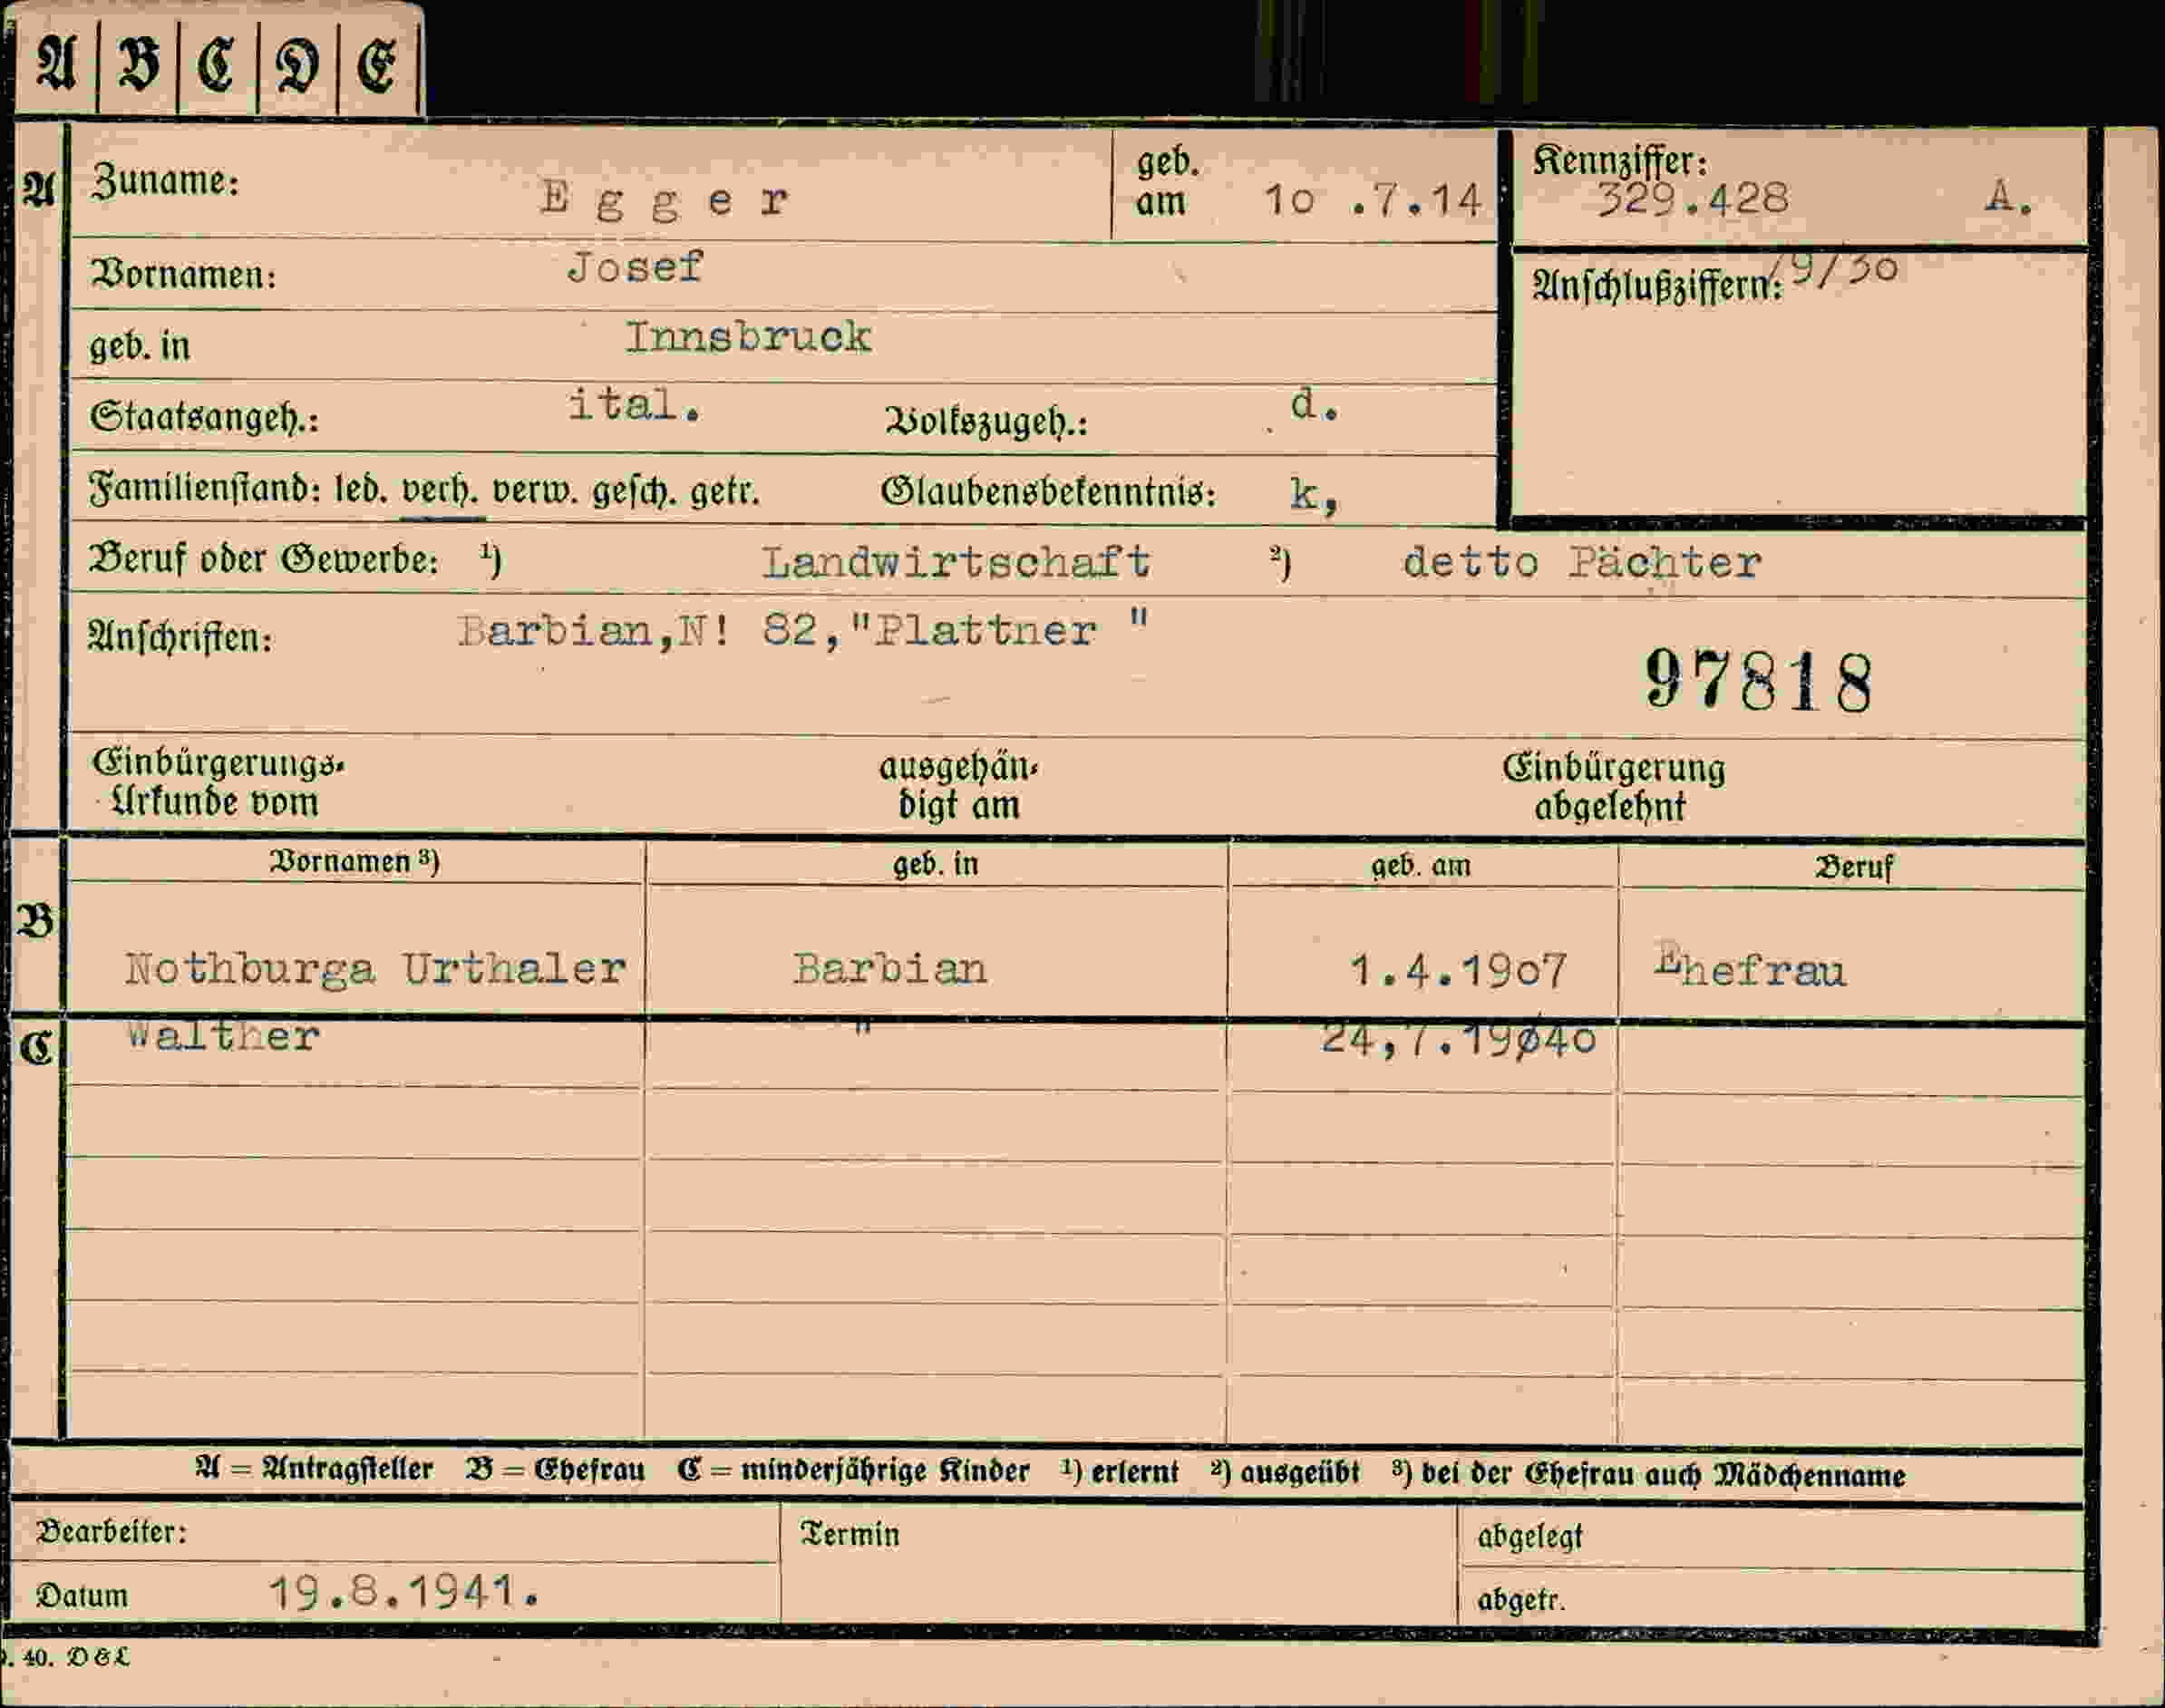 A B C D E
A Zuname: Egger geb. am 1o .7.14 Kennziffer: 329.428 A.
Vornamen: Josef Anschlußziffern: /9/3o
geb. in Innsbruck
Staatsangeh.: ital. Volkszugeh.: d.
Familienstand: led. verh. verw. gesch. getr. Glaubensbekenntnis: k,
Beruf oder Gewerbe: ¹) Landwirtschaft ²) detto Pächter
Anschriften: Barbian,N! 82,"Plattner "
97818
Einbürgerungs- ausgehän- Einbürgerung
Urkunde vom digt am abgelehnt
Vornamen ³) geb. in geb. am Beruf
B Nothburga Urthaler Barbian 1.4.19o7 Ehefrau
C Walther " 24,7.19ø4o
A = Antragsteller B = Ehefrau C = minderjährige Kinder ¹) erlernt ²) ausgeübt ³) bei der Ehefrau auch Mädchenname
Bearbeiter: Termin abgelegt
Datum 19.8.1941. abgetr.
. 40. D & L